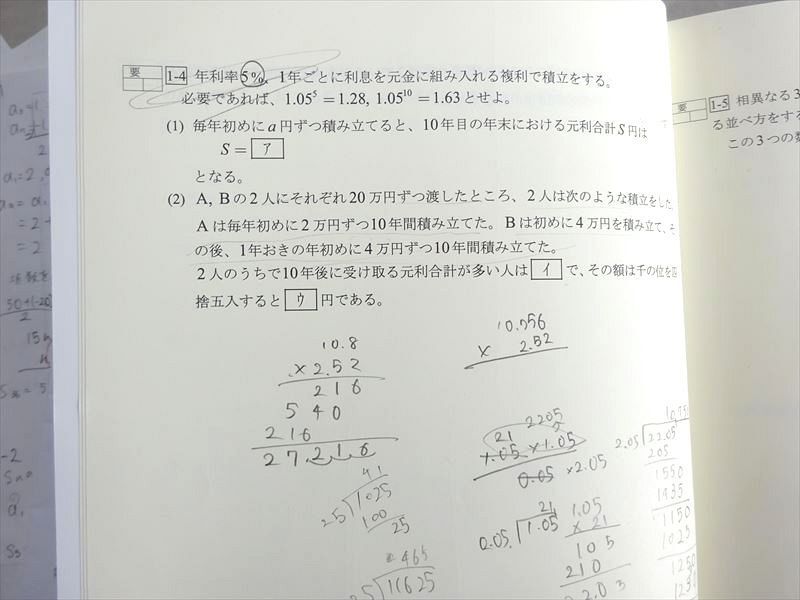 要
1-4 年利率5%、1年ごとに利息を元金に組み入れる複利で積立をする。
必要であれば、1.05⁵=1.28, 1.05¹⁰=1.63とせよ。
(1) 毎年初めにa円ずつ積み立てると、10年目の年末における元利合計S円は
S= ア
となる。
(2) A, Bの2人にそれぞれ20万円ずつ渡したところ、2人は次のような積立をした。
Aは毎年初めに2万円ずつ10年間積み立てた。Bは初めに4万円を積み立て、そ
の後、1年おきの年初めに4万円ずつ10年間積み立てた。
2人のうちで10年後に受け取る元利合計が多い人は イ で、その額は千の位を四
捨五入すると ウ 円である。
10.8
×2.52
216
540
216
27.216
10.756
× 2.52
2205
21
1.05 ×1.05
0.05 ×2.05
41
25 1025
100
25
465
11625
21
0.05 1.05
1.05
× 21
105
210
2.05 22.05
205
1550
1435
1150
1025
要
1-5 相異なる3
る並べ方をする
この3つの数